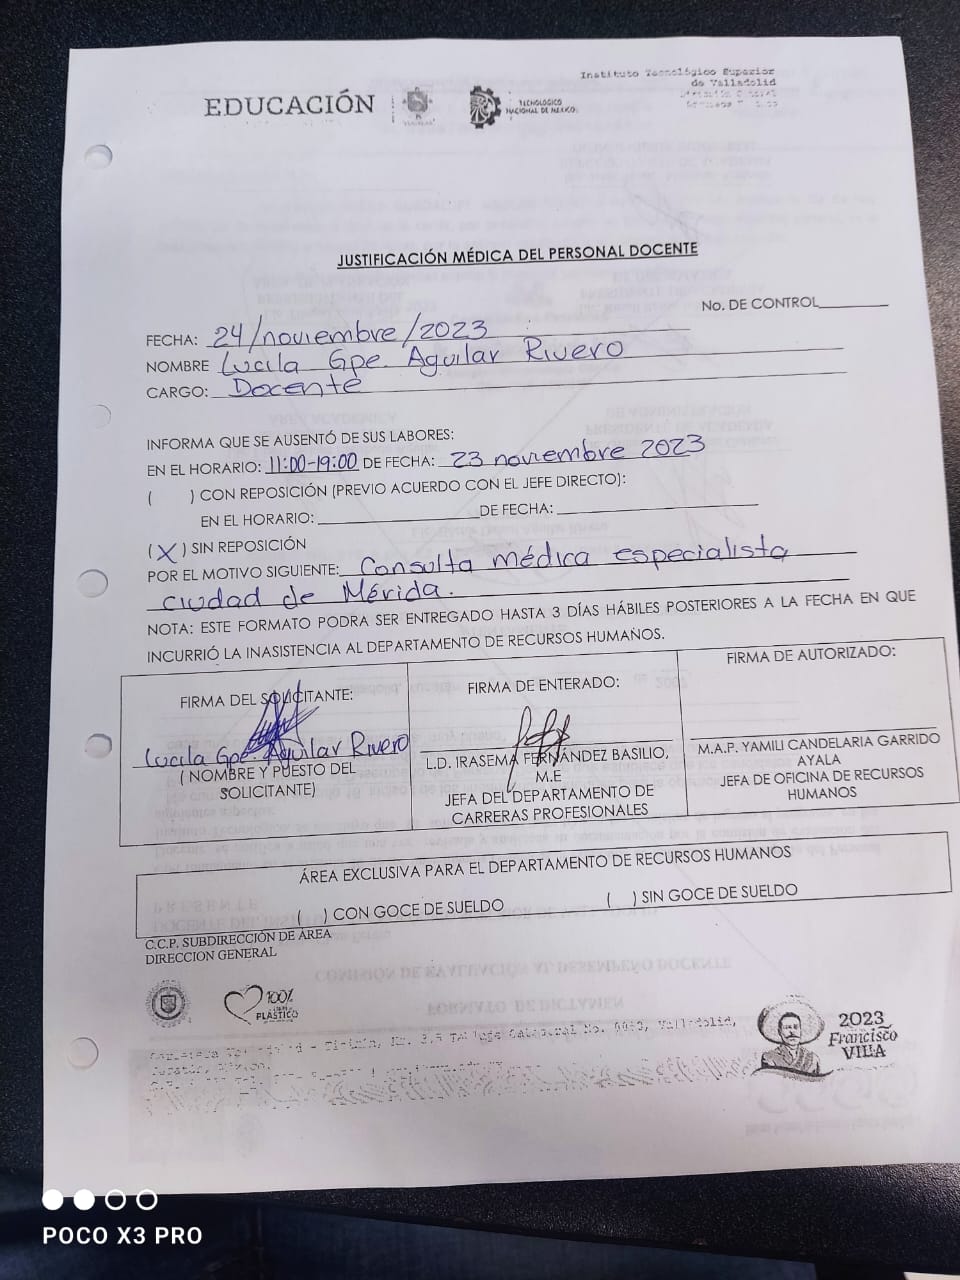 Instituto Tecnológico Superior
de Valladolid
EDUCACIÓN
TECNOLÓGICO
NACIONAL DE MÉXICO
JUSTIFICACIÓN MÉDICA DEL PERSONAL DOCENTE
No. DE CONTROL
FECHA: 24/noviembre/2023
NOMBRE Lucila Gpe. Aguilar Rivero
CARGO: Docente
INFORMA QUE SE AUSENTÓ DE SUS LABORES:
EN EL HORARIO: 11:00-19:00 DE FECHA: 23 noviembre 2023
( ) CON REPOSICIÓN (PREVIO ACUERDO CON EL JEFE DIRECTO):
EN EL HORARIO: DE FECHA:
(X) SIN REPOSICIÓN
POR EL MOTIVO SIGUIENTE: Consulta médica especialista
ciudad de Mérida.
NOTA: ESTE FORMATO PODRA SER ENTREGADO HASTA 3 DÍAS HÁBILES POSTERIORES A LA FECHA EN QUE
INCURRIÓ LA INASISTENCIA AL DEPARTAMENTO DE RECURSOS HUMANOS.
FIRMA DEL SOLICITANTE:
Lucila Gpe. Aguilar Rivero
( NOMBRE Y PUESTO DEL
SOLICITANTE)
FIRMA DE ENTERADO:
L.D. IRASEMA FERNÁNDEZ BASILIO,
M.E
JEFA DEL DEPARTAMENTO DE
CARRERAS PROFESIONALES
FIRMA DE AUTORIZADO:
M.A.P. YAMILI CANDELARIA GARRIDO
AYALA
JEFA DE OFICINA DE RECURSOS
HUMANOS
ÁREA EXCLUSIVA PARA EL DEPARTAMENTO DE RECURSOS HUMANOS
( ) CON GOCE DE SUELDO ( ) SIN GOCE DE SUELDO
C.C.P. SUBDIRECCIÓN DE ÁREA
DIRECCION GENERAL
100%
PLÁSTICO
2023
Francisco
VILLA
POCO X3 PRO